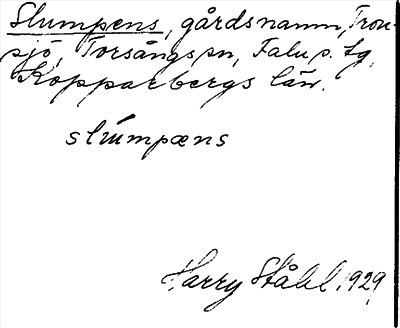 Slumpens, gårdsnamn, Tron-
sjö, Torsångs sn, Falu s. tg,
Kopparbergs län.
slumpæns
Harry Ståhl 1929